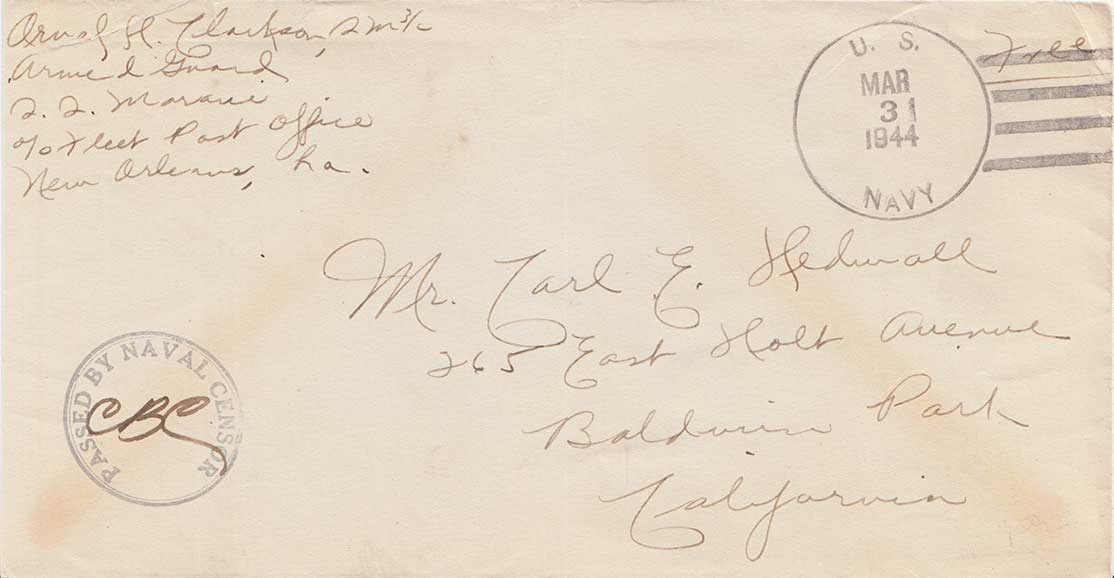 H. Clarkson, S M 3/c
Armed Guard
c/o Fleet Post Office
New Orleans, La.
U. S.
MAR
31
1944
NAVY
Free
Mr. Carl E. Hedwall
265 East Holt Avenue
Baldwin Park
California
PASSED BY NAVAL CENSOR
CBC